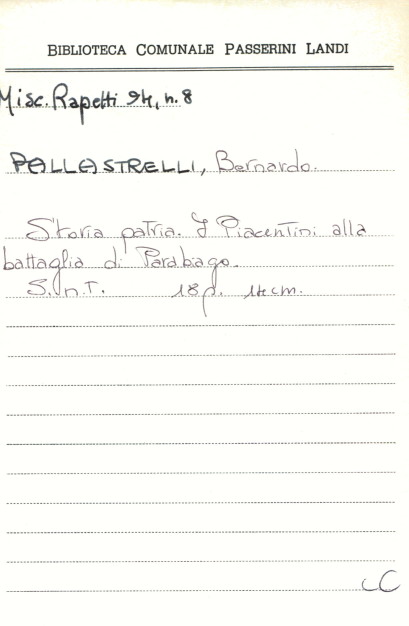 BIBLIOTECA COMUNALE PASSERINI LANDI
Misc. Rapetti 94, n. 8
PALLASTRELLI, Bernardo.
Storia patria. I Piacentini alla
battaglia di Parabiago.
S.n.T. 18 p. 14 cm.
CC